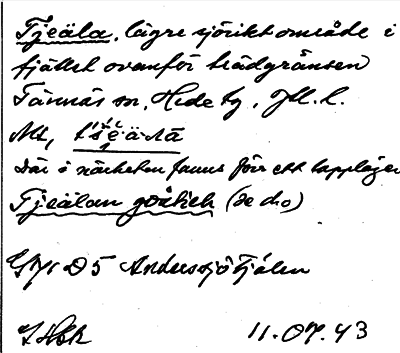 Tjeäla, lägre sjörikt område i
fjället ovanför trädgränsen
Tännäs sn, Hede tg, Jtl. l.
Där i närheten fanns förr ett lappläger
Tjeälan goåtieh (se d.o)
D5 Anderssjöfjälen
11.07.43